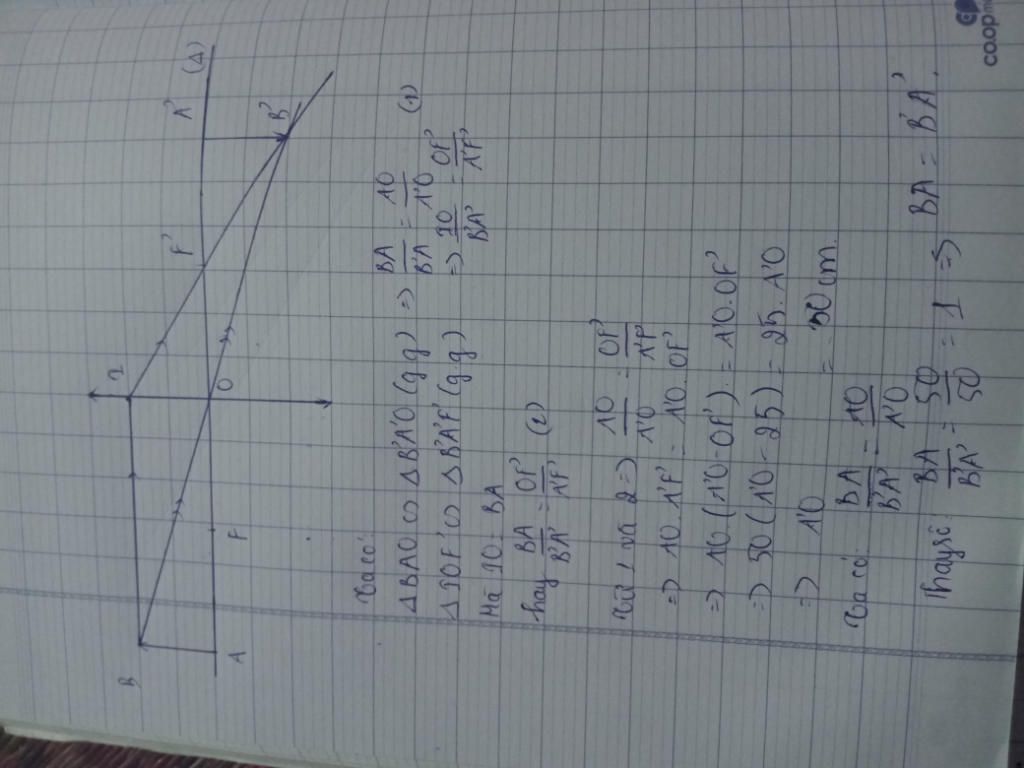 B I
A F O F' A' (Δ)
B'
Ta có:
ΔBAO ∽ ΔB'A'O (g.g) => BA/B'A = AO/A'O (1)
ΔIOF' ∽ ΔB'A'F' (g.g) => IO/B'A' = OF'/A'F'
Mà IO = BA
hay BA/B'A' = OF'/A'F' (2)
Từ 1 và 2 => AO/A'O = OF'/A'F'
=> AO.A'F' = A'O.OF'
=> AO(A'O-OF') = A'O.OF'
=> 50(A'O-25) = 25.A'O
=> A'O = 50 cm.
Ta có: BA/B'A' = AO/A'O
Thay số: BA/B'A' = 50/50 = 1 => BA = B'A'.
co.opm